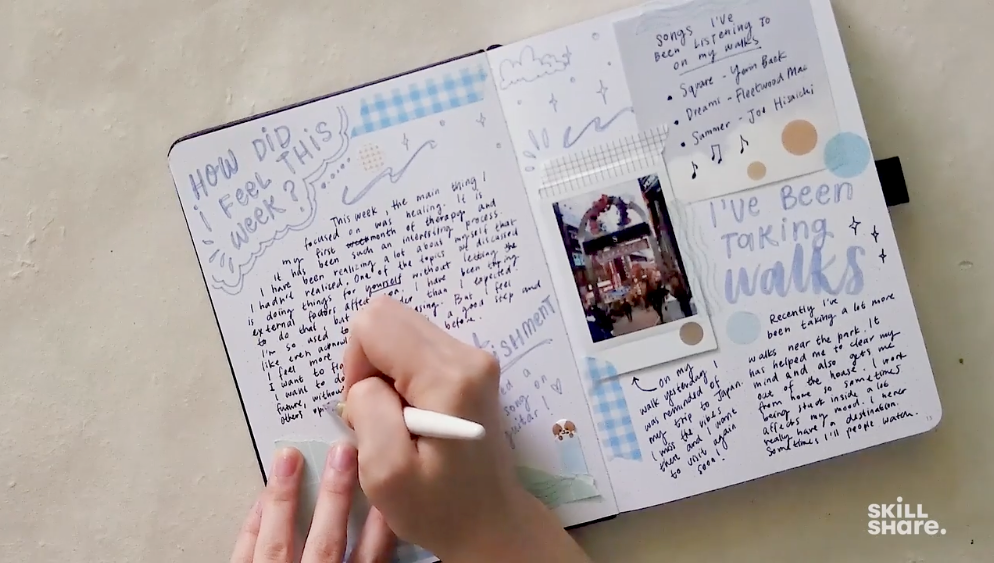 HOW DID
I FEEL THIS
WEEK?
This week, the main thing I
focused on was healing. It is
my first month of therapy and
it has been such an interesting process.
I have been realizing a lot about myself that
I hadn't realised. One of the topics I discussed
is doing things for yourself without letting the
external factors affect
to do that, but
I'm so used to
like even
I feel more
I want to
I want to
future, without
others
than I expected.
But I feel
a good step and
before.
a
song on
guitar! ♡
SONGS I'VE
BEEN LISTENING TO
ON MY WALKS
• Square - Yerin Baek
• Dreams - Fleetwood Mac
• Summer - Joe Hisaichi
I'VE BEEN
TAKING
walks
on my
walk yesterday I
was reminded of
my trip to Japan.
I miss the vibes
there and I want
to visit again
soon!
Recently I've
been taking a lot more
walks near the park. It
has helped me to clear my
mind and also gets me
out of the house. I work
from home so sometimes
being stuck inside a lot
affects my mood. I never
really have a destination.
Sometimes I'll people watch.
SKILL
SHARE.